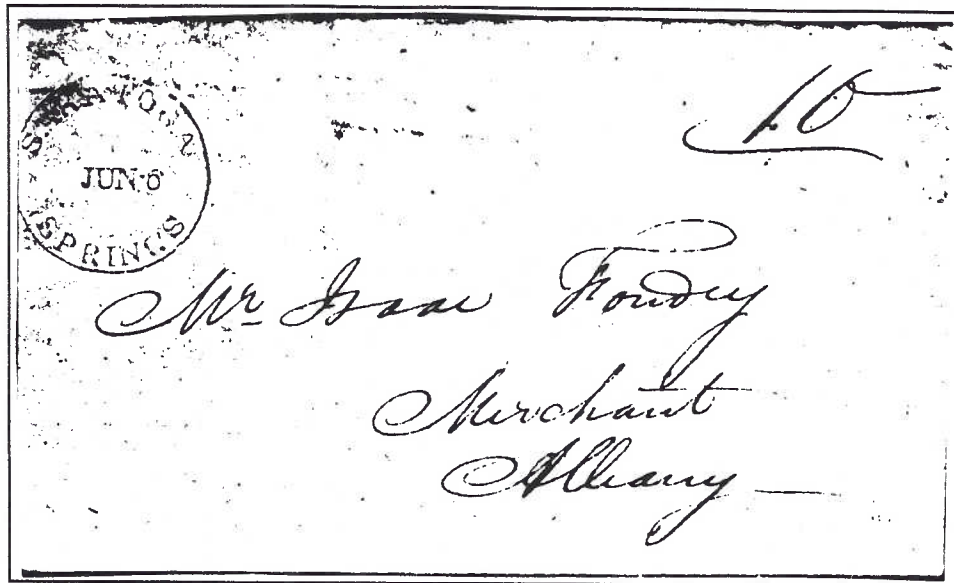 10
SARATOGA
JUN 6
SPRINGS
Mr Isaac Fondey
Merchant
Albany —